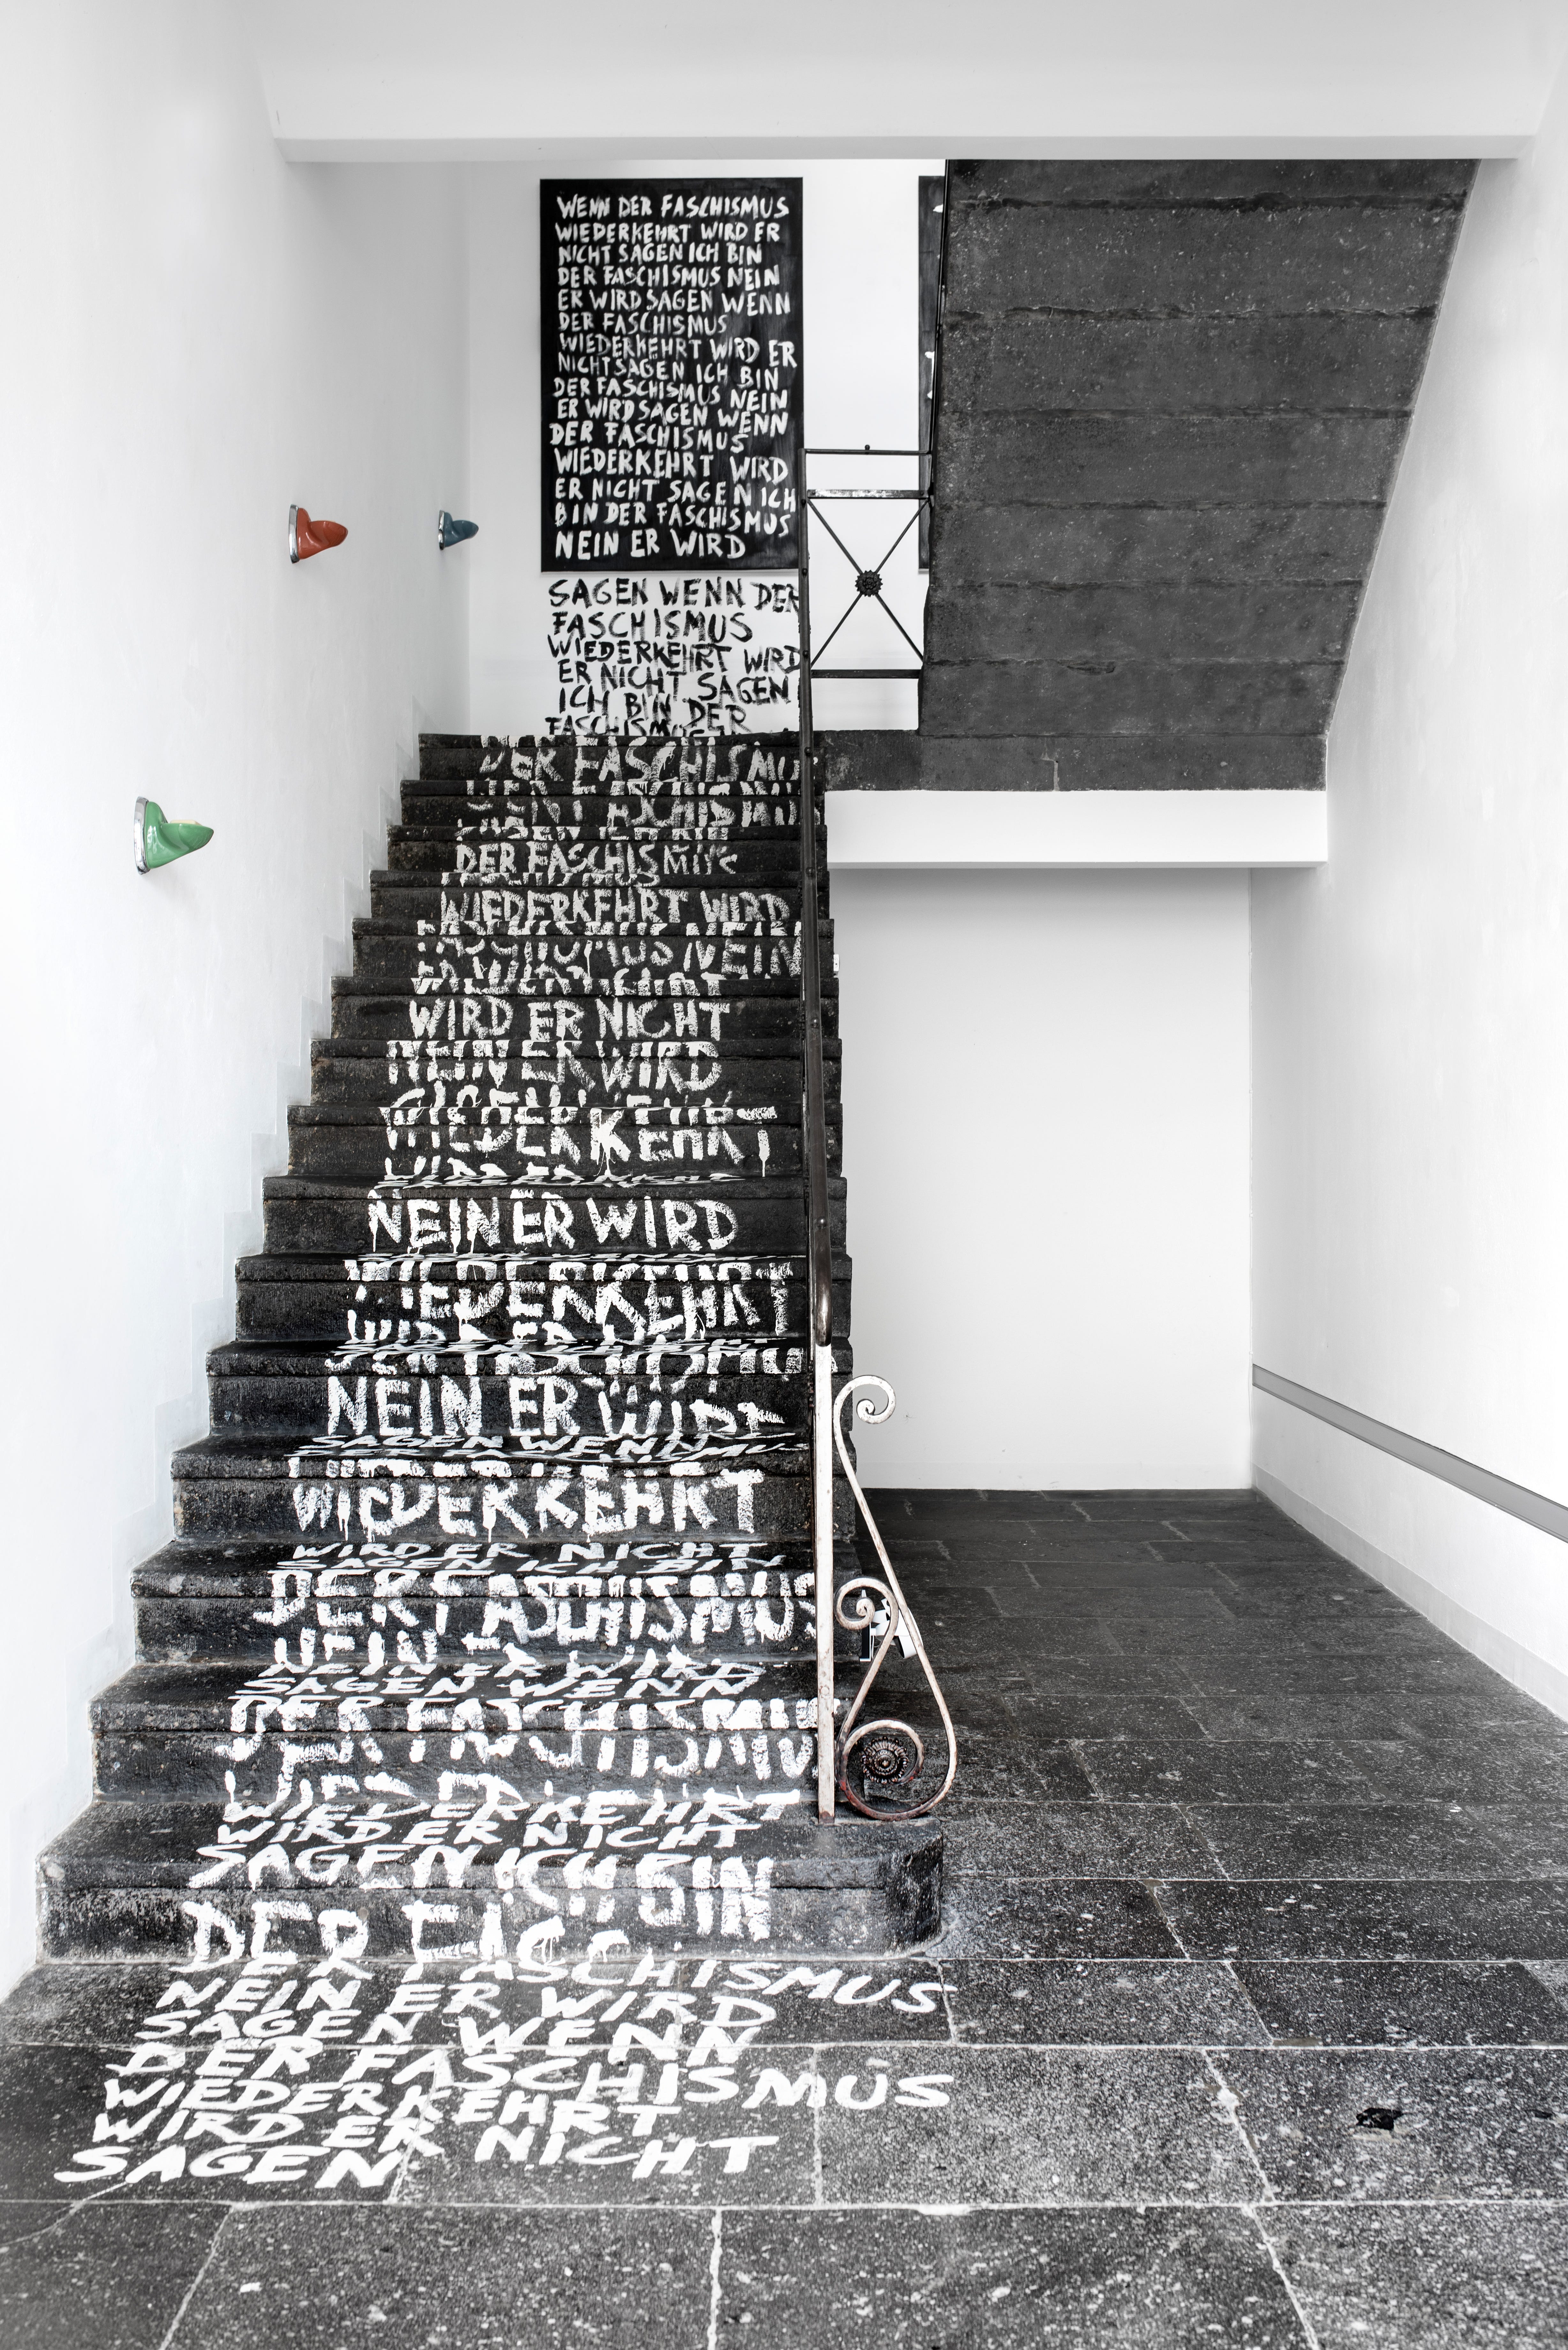 WENN DER FASCHISMUS
WIEDERKEHRT WIRD ER
NICHT SAGEN ICH BIN
DER FASCHISMUS NEIN
ER WIRD SAGEN WENN
DER FASCHISMUS
WIEDERKEHRT WIRD ER
NICHT SAGEN ICH BIN
DER FASCHISMUS NEIN
ER WIRD SAGEN WENN
DER FASCHISMUS
WIEDERKEHRT WIRD
ER NICHT SAGEN ICH
BIN DER FASCHISMUS
NEIN ER WIRD
SAGEN WENN DER
FASCHISMUS
WIEDERKEHRT WIRD
ER NICHT SAGEN
ICH BIN DER
FASCHISMUS
DER FASCHISMUS
DER FASCHISMUS
WIEDERKEHRT WIRD
FASCHISMUS NEIN
WIRD ER NICHT
NEIN ER WIRD
WIEDERKEHRT
WIRD ER NICHT
NEIN ER WIRD
WIEDERKEHRT
WIRD ER
DER FASCHISMUS
NEIN ER WIRD
SAGEN WENN
WIEDERKEHRT
WIRD ER NICHT
SAGEN ICH BIN
DER FASCHISMUS
NEIN ER WIRD
SAGEN WENN
DER FASCHISMUS
WIEDERKEHRT
WIRD ER NICHT
SAGEN ICH BIN
DER FASCHISMUS
NEIN ER WIRD
SAGEN WENN
DER FASCHISMUS
WIEDERKEHRT
WIRD ER NICHT
SAGEN